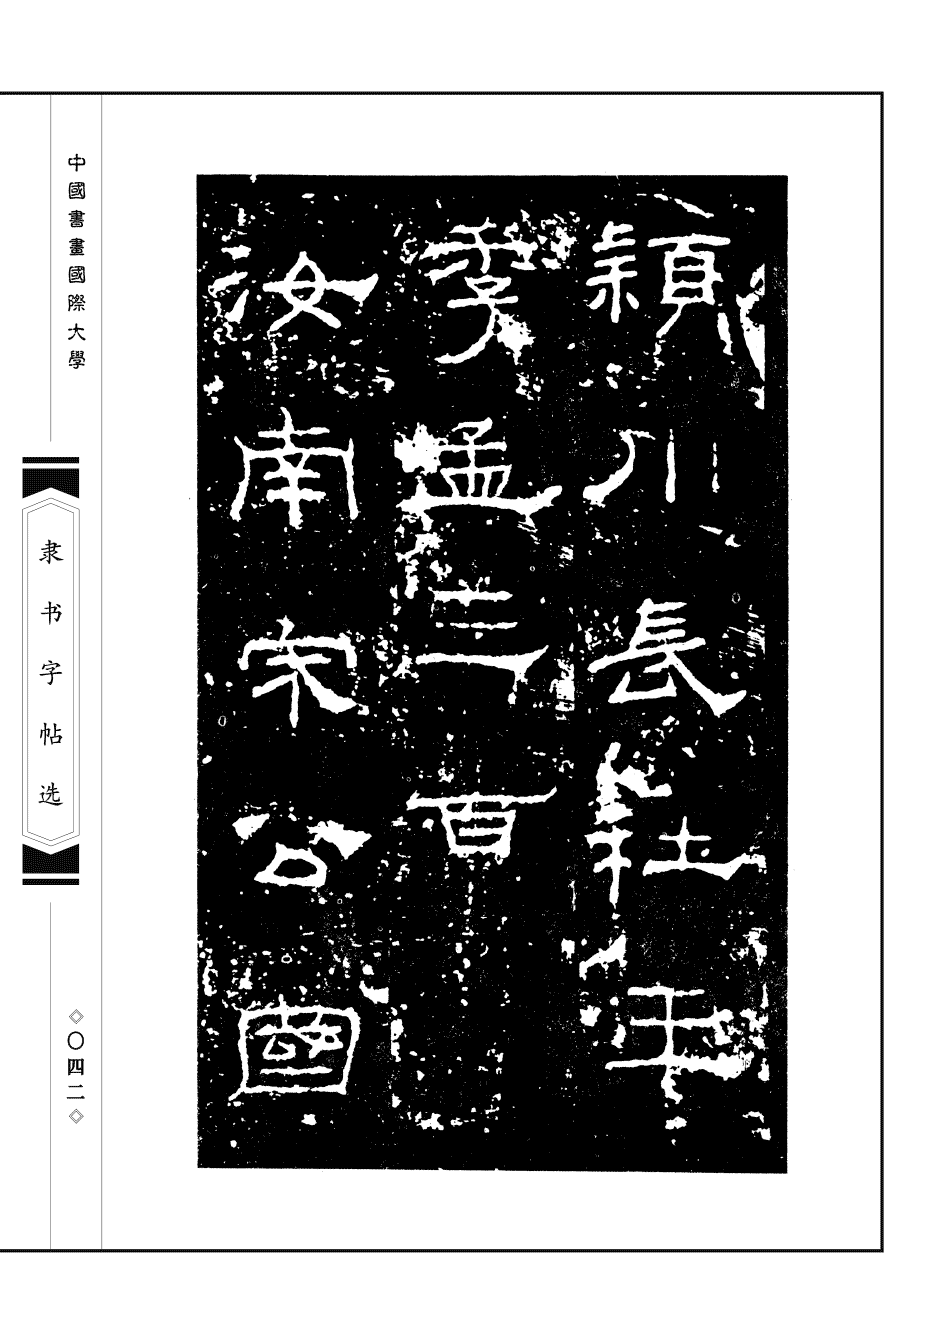 潁川長社王
季孟三百
汝南宋公國
中國書畫國際大學
隶书字帖选
〇四二